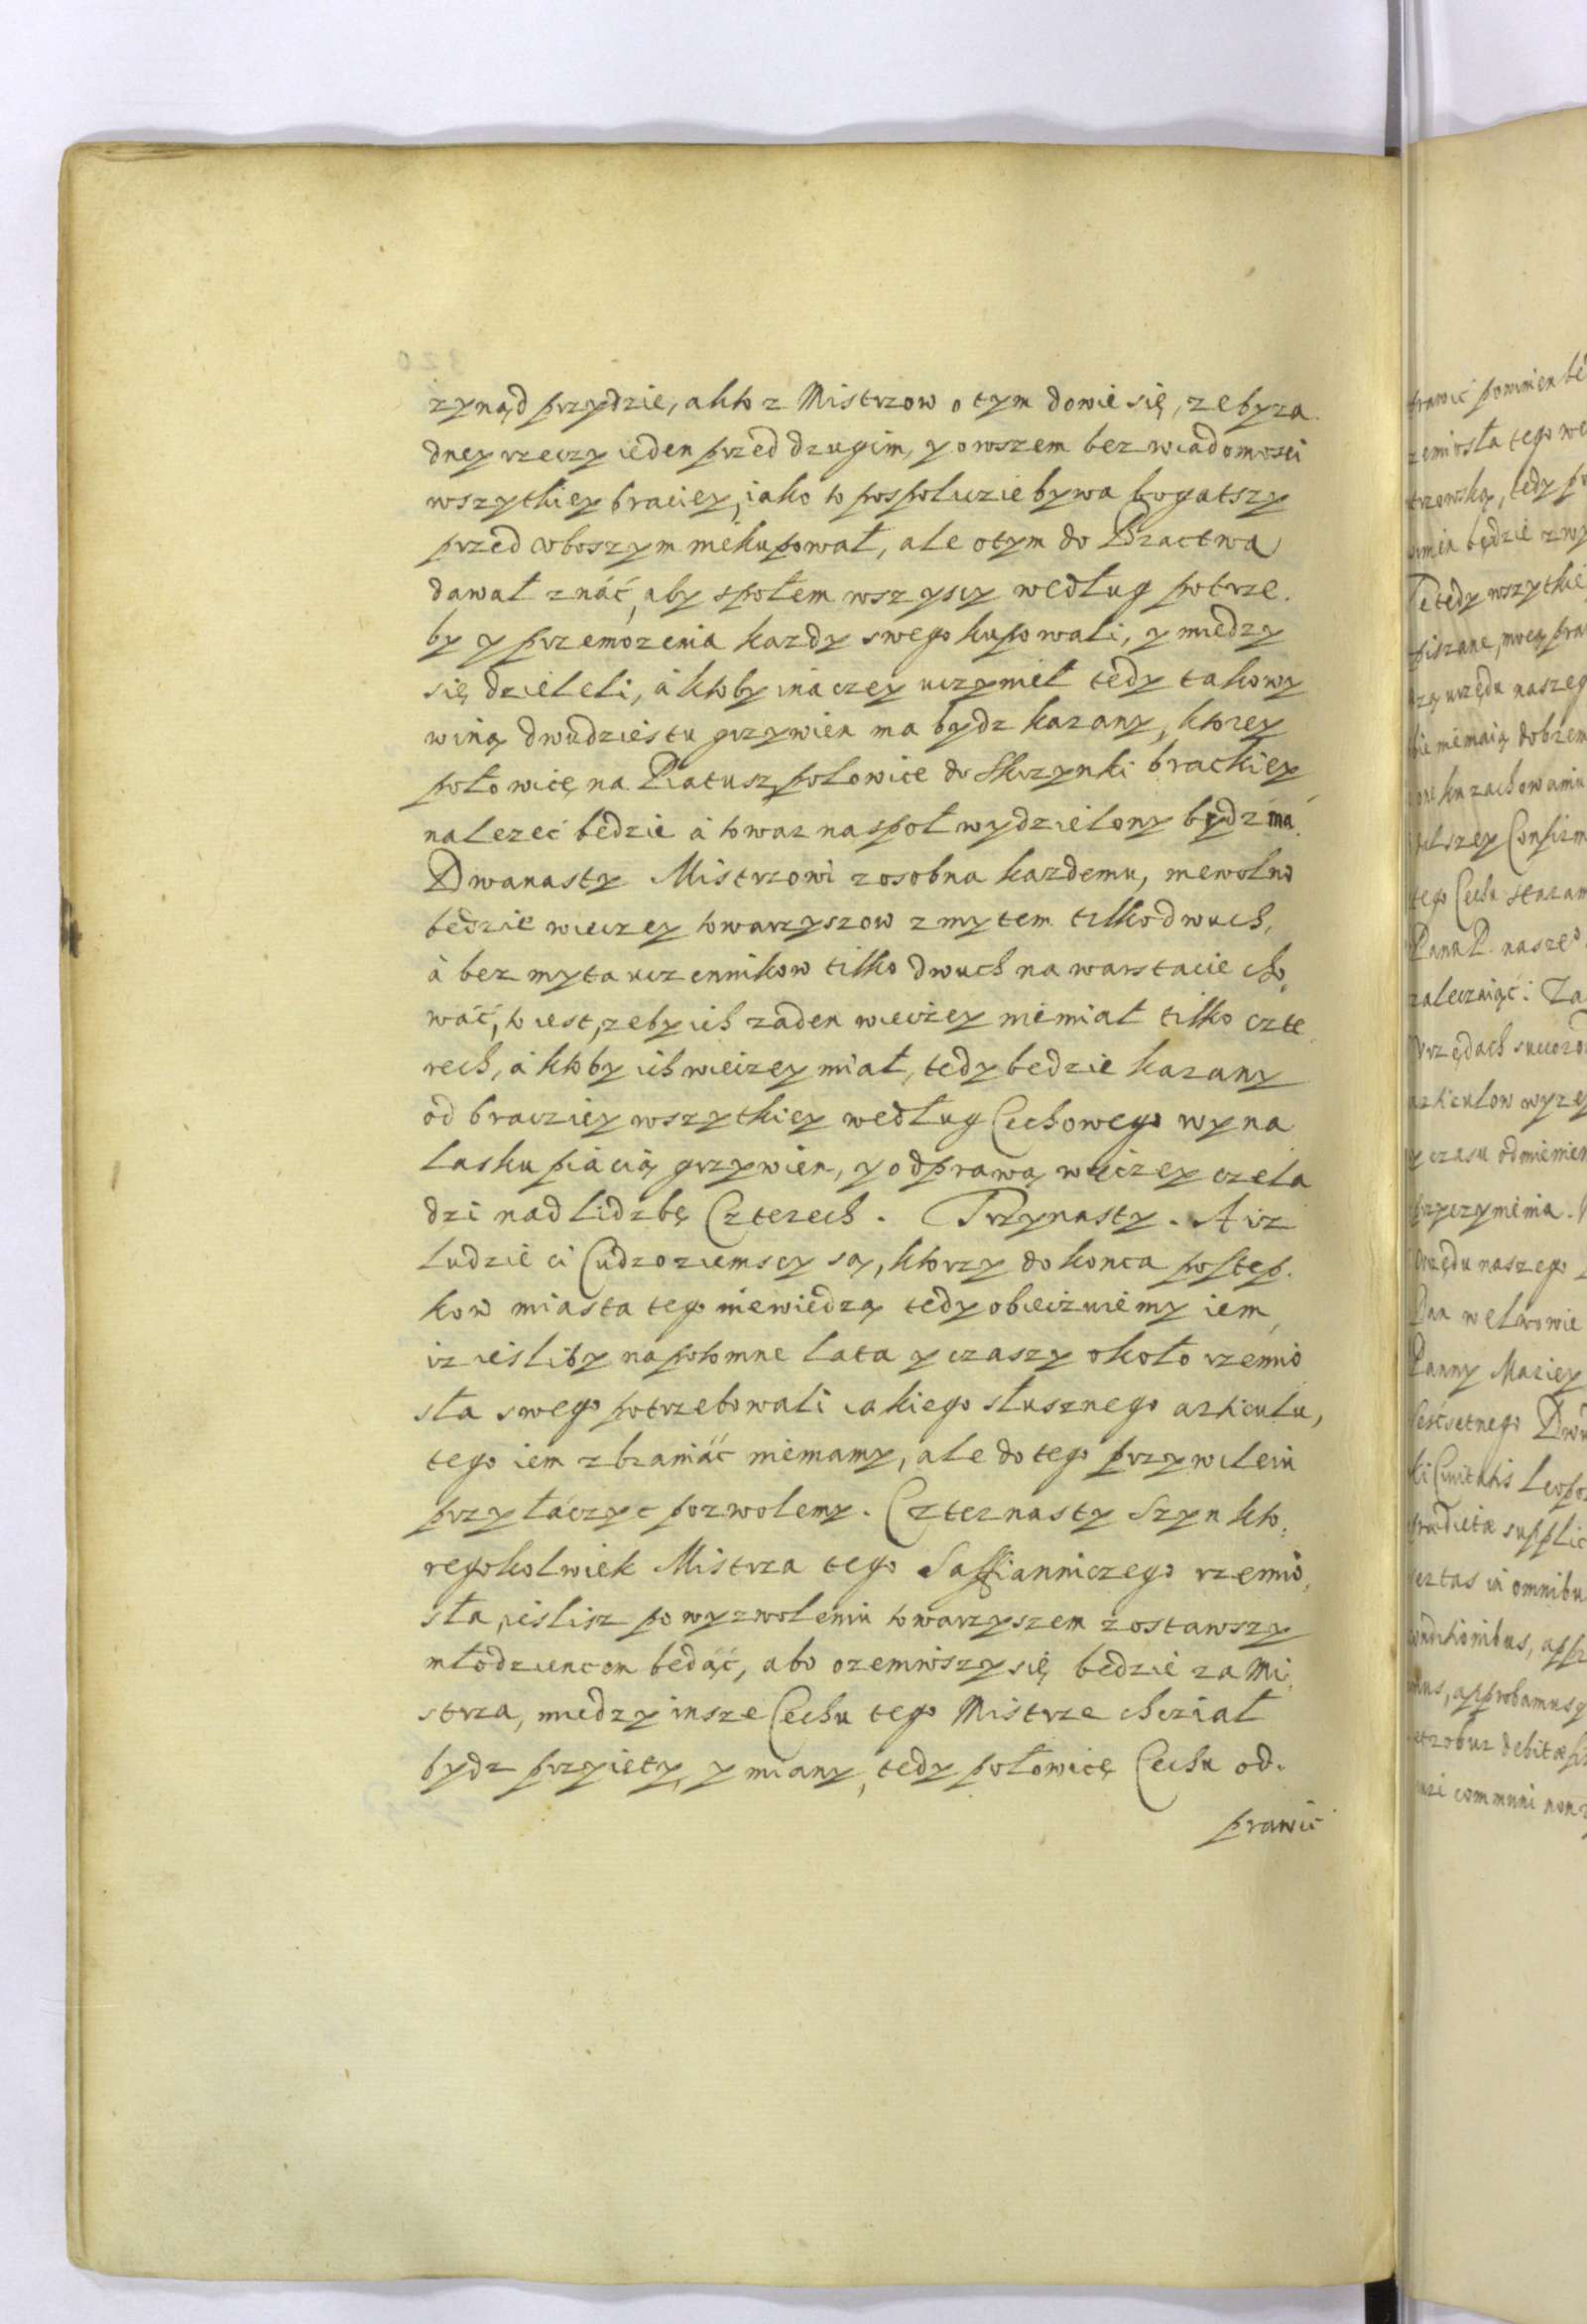 zynąd przydzie, a kto z Mistrzow o tym dowie się, zeby za
dney rzeczy ieden przed drugim, y owszem bez wiadomosci
wszytkiey braciey, iako to pospoliczie bywa bogatszy
przed vboszym niekupował, ale otym do Bractwa
dawał znáć, aby społem wszyscy według potrze.
by y przemozenia kazdy swego kupowali, y miedzy
się dzieleli, á ktoby ináczey uczynieł tedy takowy
winą dwudziestu grzywien ma bydz karany, ktorey
połowicę na Ratusz, połowice do Skrzynki brackiey
nalezeć bedzie á towar naspoł wydzielony bydz má.
Dwanasty Mistrzowi zosobna kazdemu, niewolno
bedzie wieczey towarzyszow z mytem tilko dwuch,
á bez myta uczennikow tilko dwuch na warstacie cho,
wáć, to iest, zeby ich zaden wieczey niemiał tilko czte
rech, á ktoby ich wieczey miał, tedy bedzie karany
od bracziey wszytkiey według Cechowego wyna
lasku piácią grzywien, y odprawą wieczey czela
dzi nad lidzbę Czterech. Trzynasty. A iz
ludzie ci Cudzoziemscy są, ktorzy do konca postep.
kow miasta tego niewiedzą tedy obieciuiemy iem,
iz iesliby napotomne lata y czaszy około rzemio
sła swego potrzebowali iakiego słusznego artikułu,
tego iem zbraniáć niemamy, ale do tego przywileiu
przyłáczyc pozwolemy. Czternasty Szyn kto,
regokolwiek Mistrza tego Saffianniczego rzemio,
sła, ieslisz po wyzwoleniu towarzyszem zostawszy
młodziencom bedáć, abo ozeniwszy się bedzie za Mi,
strza, miedzy insze Cechu tego Mistrze chcział
bydz przyiety, y miany, tedy połowicę Cechu od.
prawic
prawić powinien bę
rzemiosła tego we
trzowską, tedy po
winien będzie zwy
Te tedy wszytkie
pisane, mocą pra
dzą urzędu naszeg
bie niemaią dobrem
one ku zachowaniu
dalszey Confirm
tego Cechu staram
Pana P. naszeo
zaleczaiąć: Za
Vrzędach suczod
artikulow wyzey
y czasu odmienien
przyczynienia.
Vrzędu naszego
Dan we Lwowie
Panny Mariey
sześćsetnego Dwu
ki Civitatis Leopo
prædictæ supplic
certas in omnibu
conditionibus, app
mus, approbamusq
et robur debitæ fi
iuri communi non